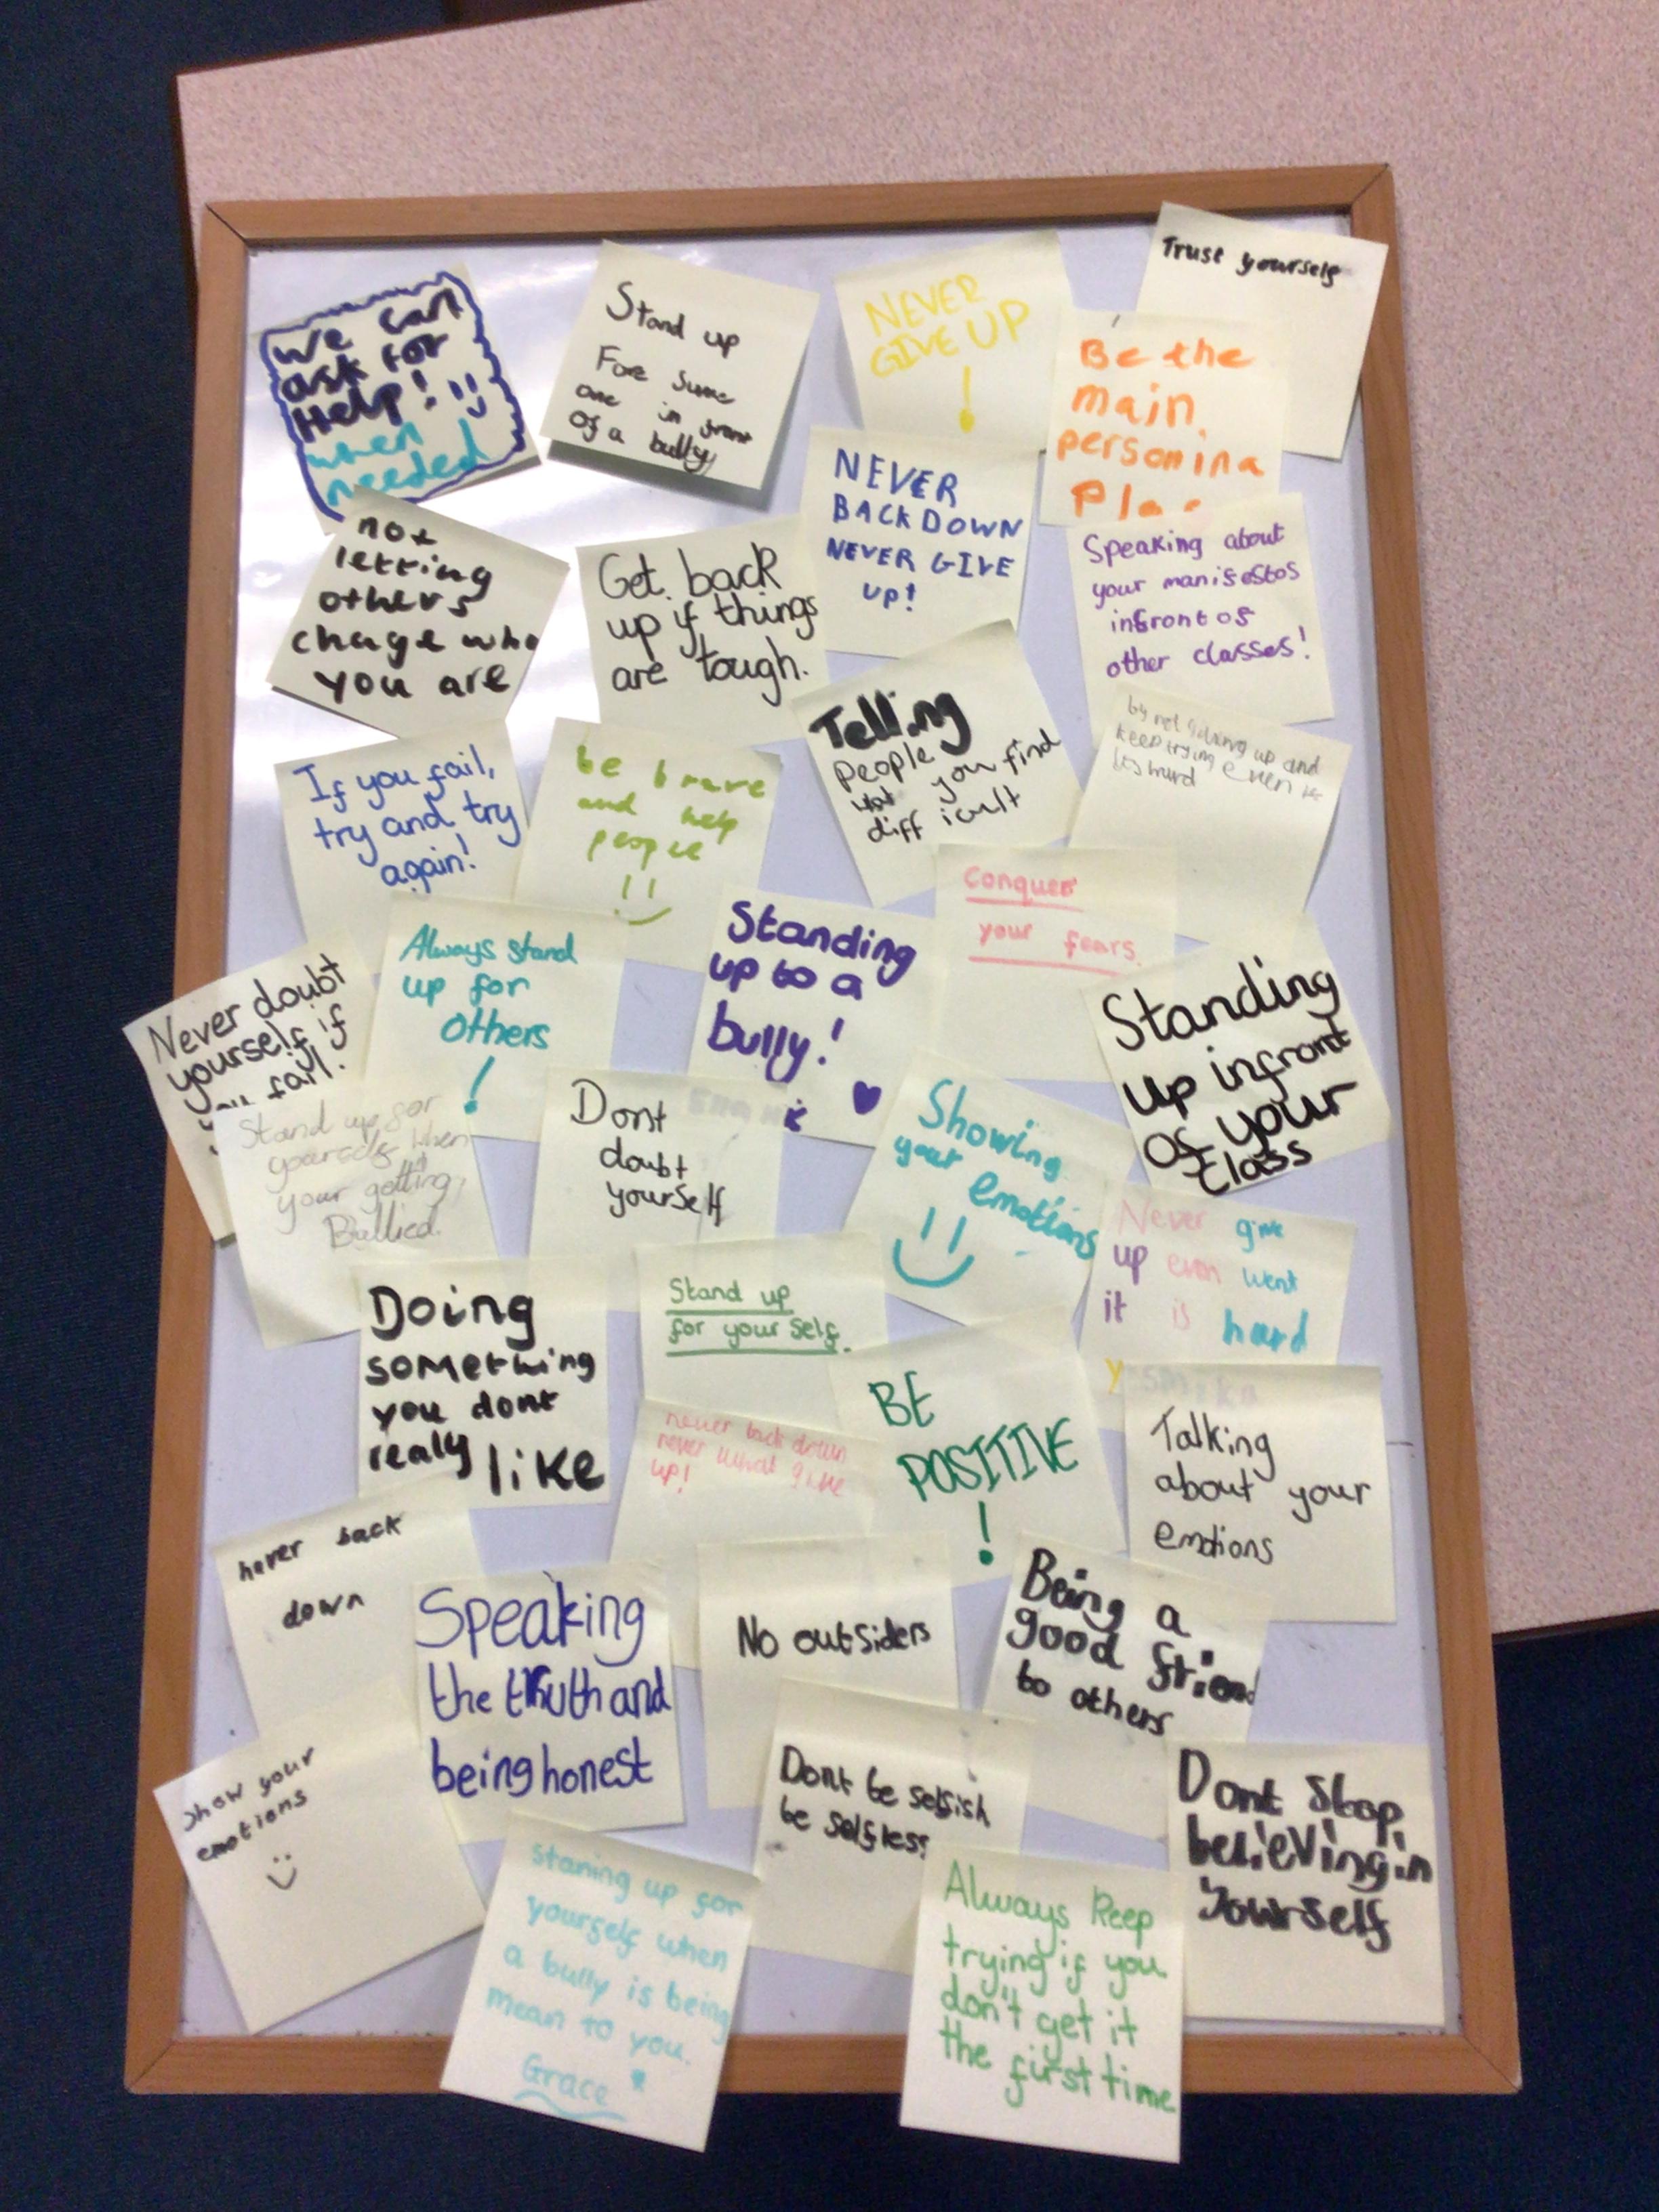 We can
ask for
Help!
when
needed
Stand up
Fore Sume
one in front
of a bully
NEVER
GIVE UP
!
Trust yourself
Be the
main
person in a
not
letting
others
chage who
you are
Get back
up if things
are tough.
NEVER
BACK DOWN
NEVER GIVE
UP!
Speaking about
your manifestos
infront of
other classes!
If you fail,
try and try
again!
be brave
and help
people
Telling
people
you find
difficult
by not giving up and
keep trying even
hard
Never doubt
yourself if
fail.
Always stand
up for
others
!
Standing
up to a
bully!
Conquer
your fears.
Standing
up infront
of your
class
Stand up for
yourself when
your getting
Bullied.
Dont
doubt
yourself
Showing
your
emotions
Never give
up even went
it is hard
Doing
something
you dont
realy like
Stand up
for your self.
never back down
never what give
up!
BE
POSITIVE
!
Talking
about your
emotions
never back
down
Speaking
the truth and
being honest
No outsiders
Being a
good frien
to others
show your
emotions
Dont be selfish
be selfless
Dont stop
believing in
yourself
staning up for
yourself when
a bully is being
mean to you.
Grace
Always keep
trying if you
don't get it
the first time